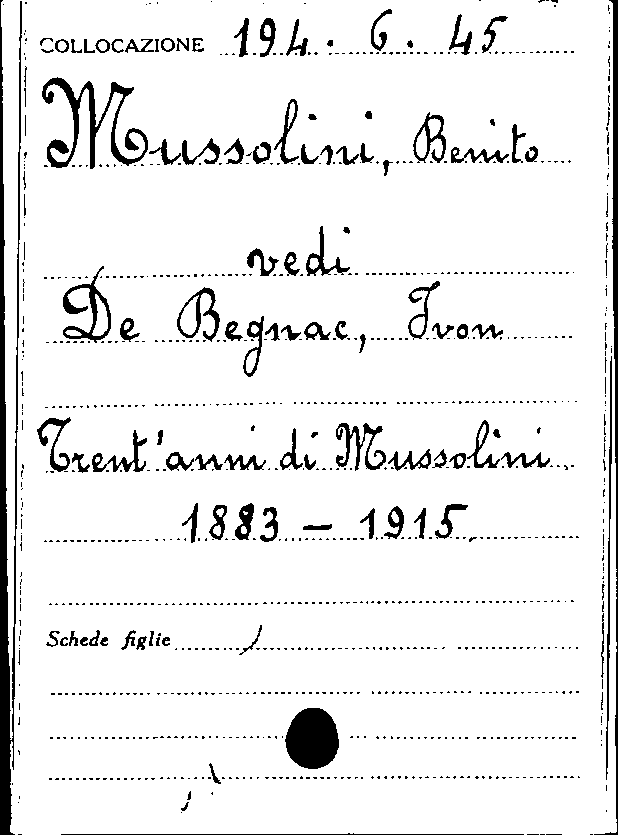 COLLOCAZIONE 194. 6. 45
Mussolini, Benito
vedi
De Begnac, Ivon
Trent'anni di Mussolini
1883 – 1915.
Schede figlie